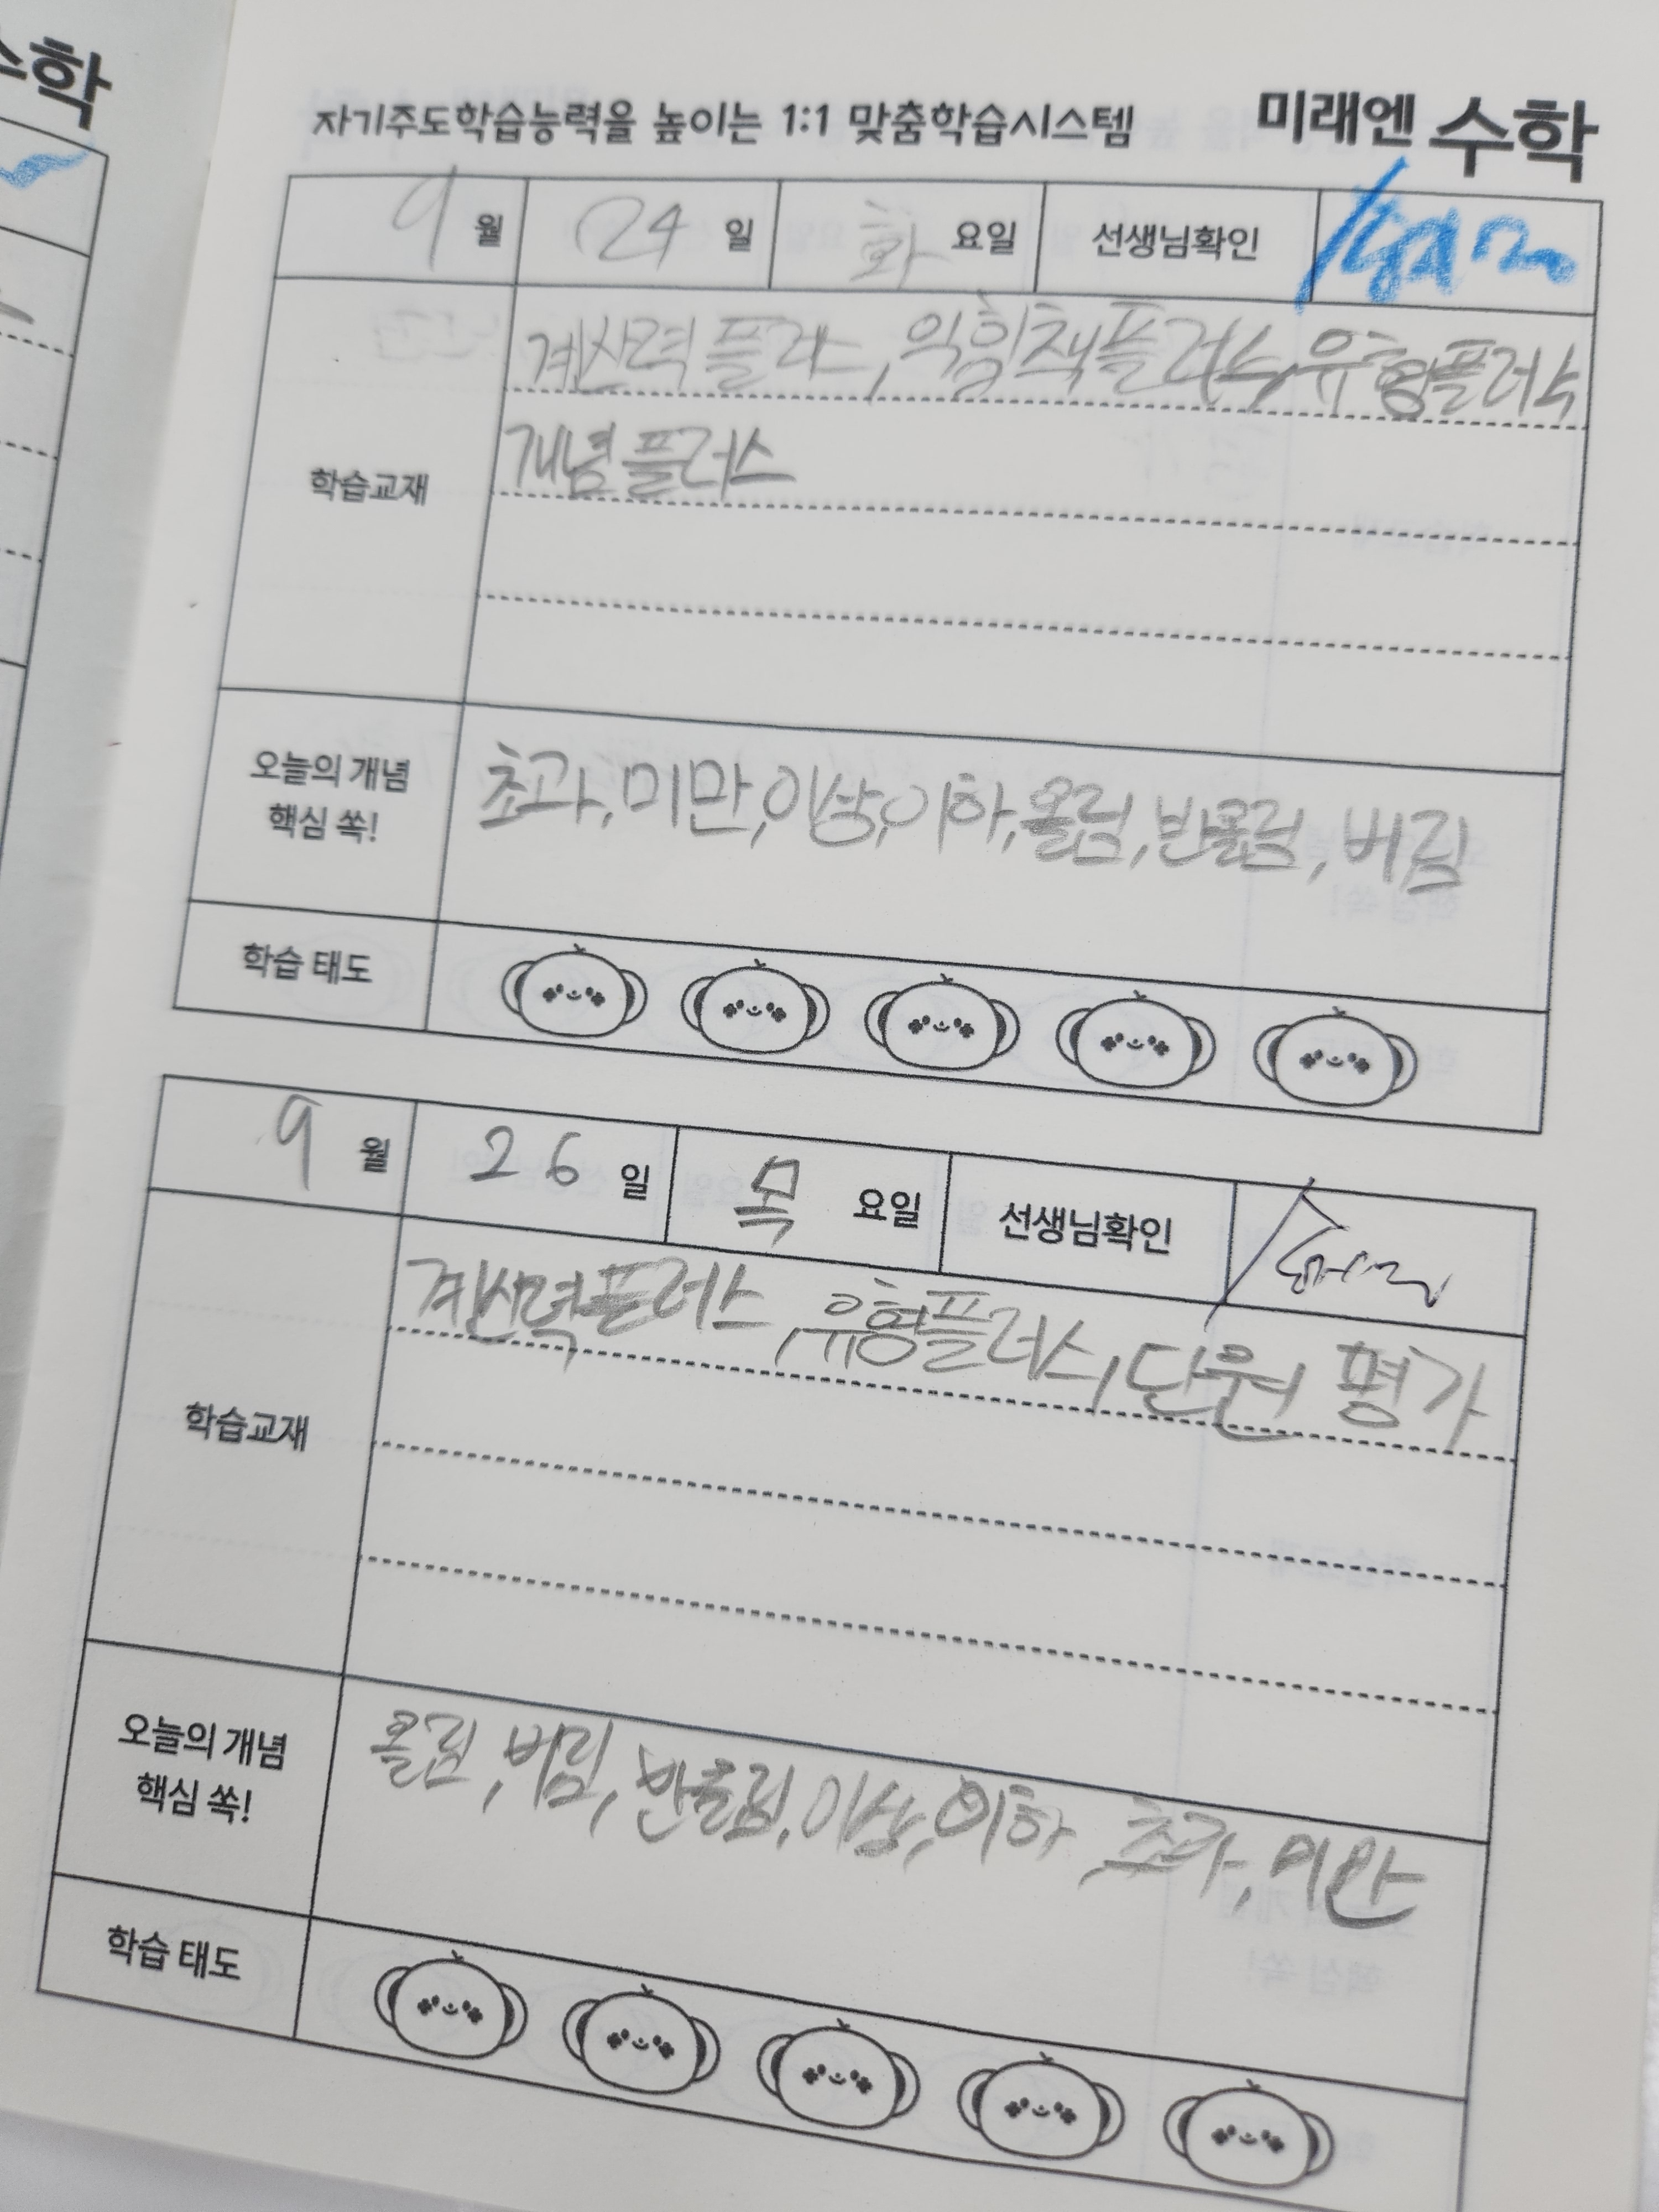 수학
자기주도학습능력을 높이는 1:1 맞춤학습시스템 미래엔 수학
9 월 24 일 화 요일 선생님확인
계산력 플러스, 익힘책플러스, 유형플러스
개념플러스
학습교재
오늘의 개념
핵심 쏙!
초과, 미만, 이상, 이하, 올림, 반올림, 버림
학습 태도
9 월 26 일 목 요일 선생님확인
계산력플러스, 유형플러스, 단원 평가
학습교재
오늘의 개념
핵심 쏙!
올림, 버림, 반올림, 이상, 이하, 초과, 미만
학습 태도